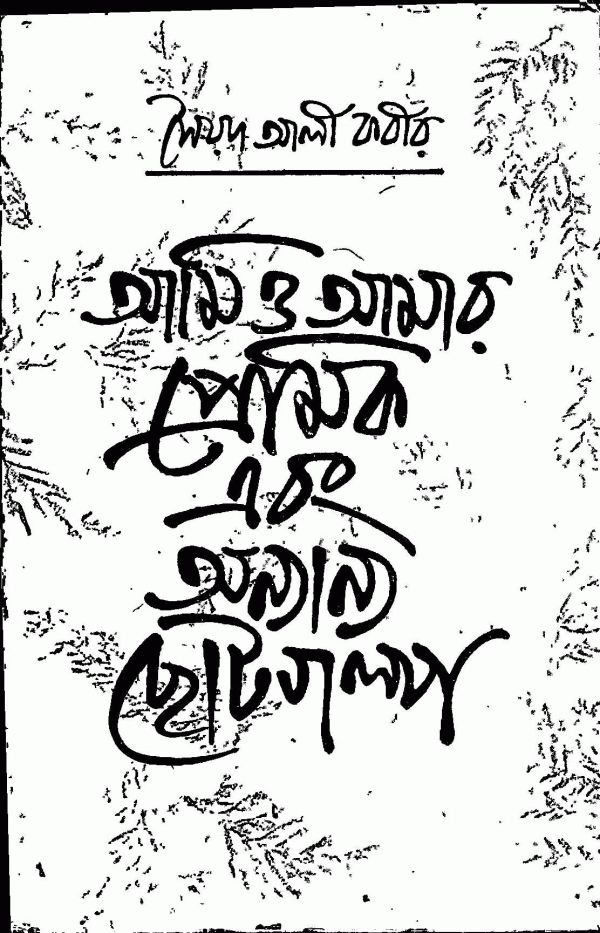 সৈয়দ আলী কবীর
আমি ও আমার
প্রেমিক
এবং
অন্যান্য
ছোটগল্প